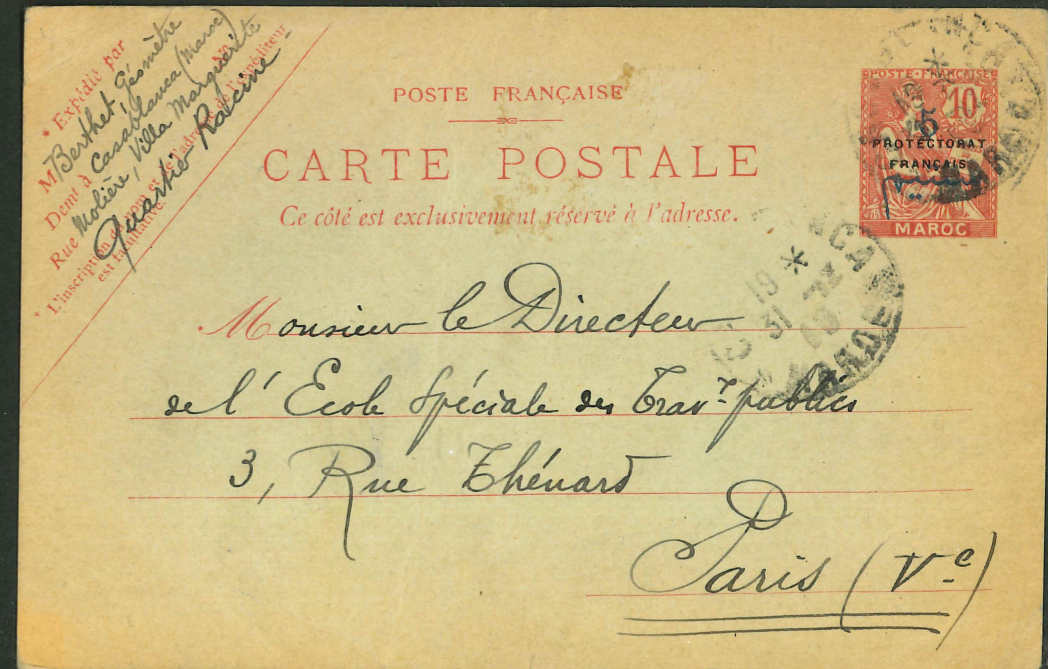 * Expédié par
M Berthet, Géomètre
Demt à Casablanca (Maroc)
Rue Molière, Villa Marguerite
Quartier Racine
* L'inscription du nom et de l'adresse de l'expéditeur
est facultative
POSTE FRANÇAISE
CARTE POSTALE
Ce côté est exclusivement réservé à l'adresse.
POSTE FRANÇAISE
10
5
PROTECTORAT
FRANÇAIS
MAROC
19 *
31
Monsieur le Directeur
de l'Ecole Spéciale des Travx publics
3, Rue Thénard
Paris (Ve)